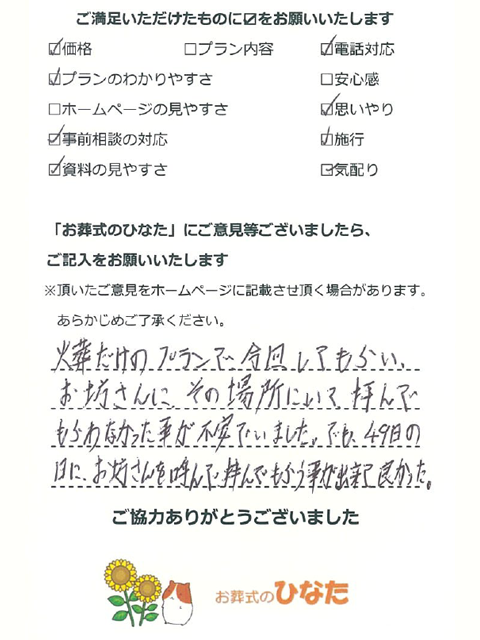 ご満足いただけたものに☑をお願いいたします
☑価格 □プラン内容 ☑電話対応
☑プランのわかりやすさ □安心感
□ホームページの見やすさ ☑思いやり
☑事前相談の対応 ☑施行
☑資料の見やすさ ☑気配り
「お葬式のひなた」にご意見等ございましたら、
ご記入をお願いいたします
※頂いたご意見をホームページに記載させ頂く場合があります。
あらかじめご了承ください。
火葬だけのプランで今回してもらい、
お坊さんに、その場所にいて拝んで
もらわなかった事が不安でいました。でも、49日の
日に、お坊さんを呼んで拝んでもらう事が出来て良かった。
ご協力ありがとうございました
お葬式のひなた